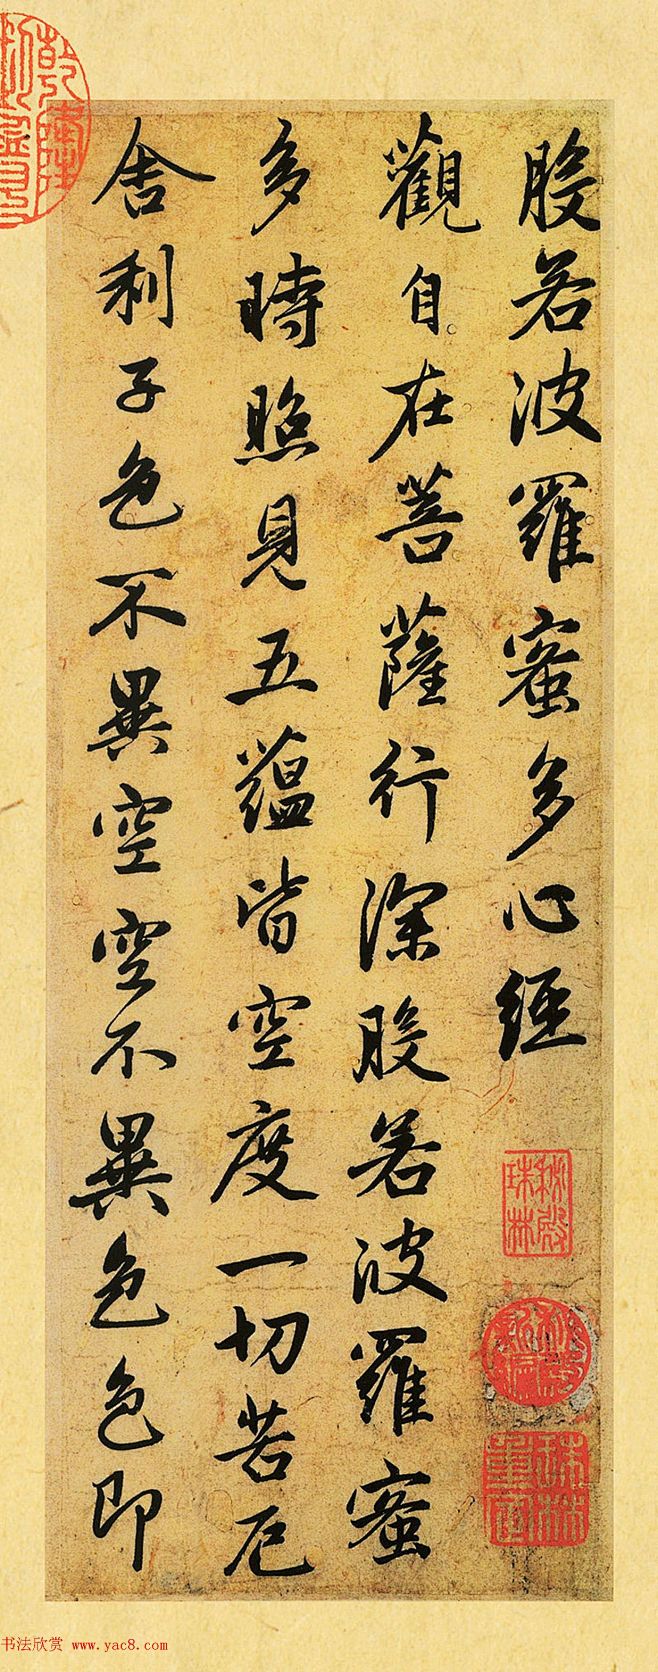 般若波羅蜜多心經
觀自在菩薩行深般若波羅蜜
多時照見五蘊皆空度一切苦厄
舍利子色不異空空不異色色即
乾隆
祕殿珠林
書法欣赏 www.yac8.com